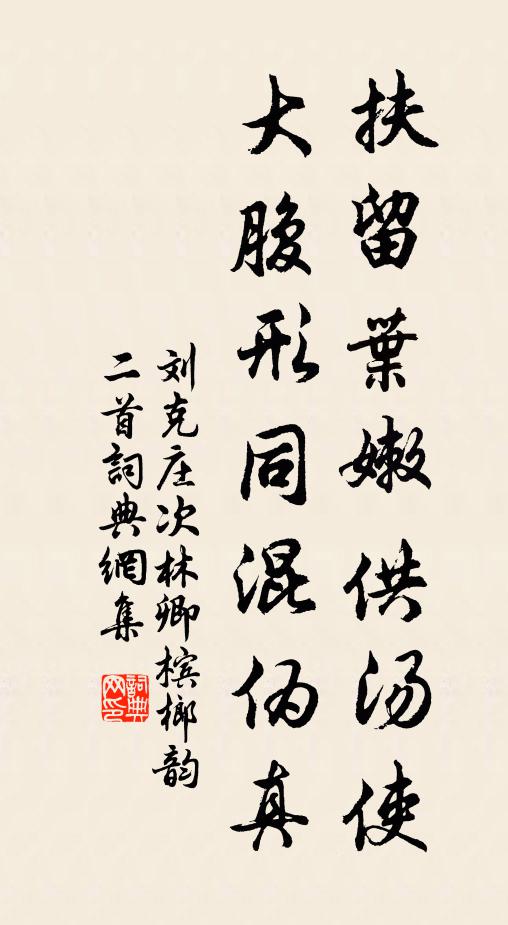 扶留葉嫩供汤使
大腹形同混伪真
刘克庄次林卿槟榔韵
二首詞典網集
詞典
网印